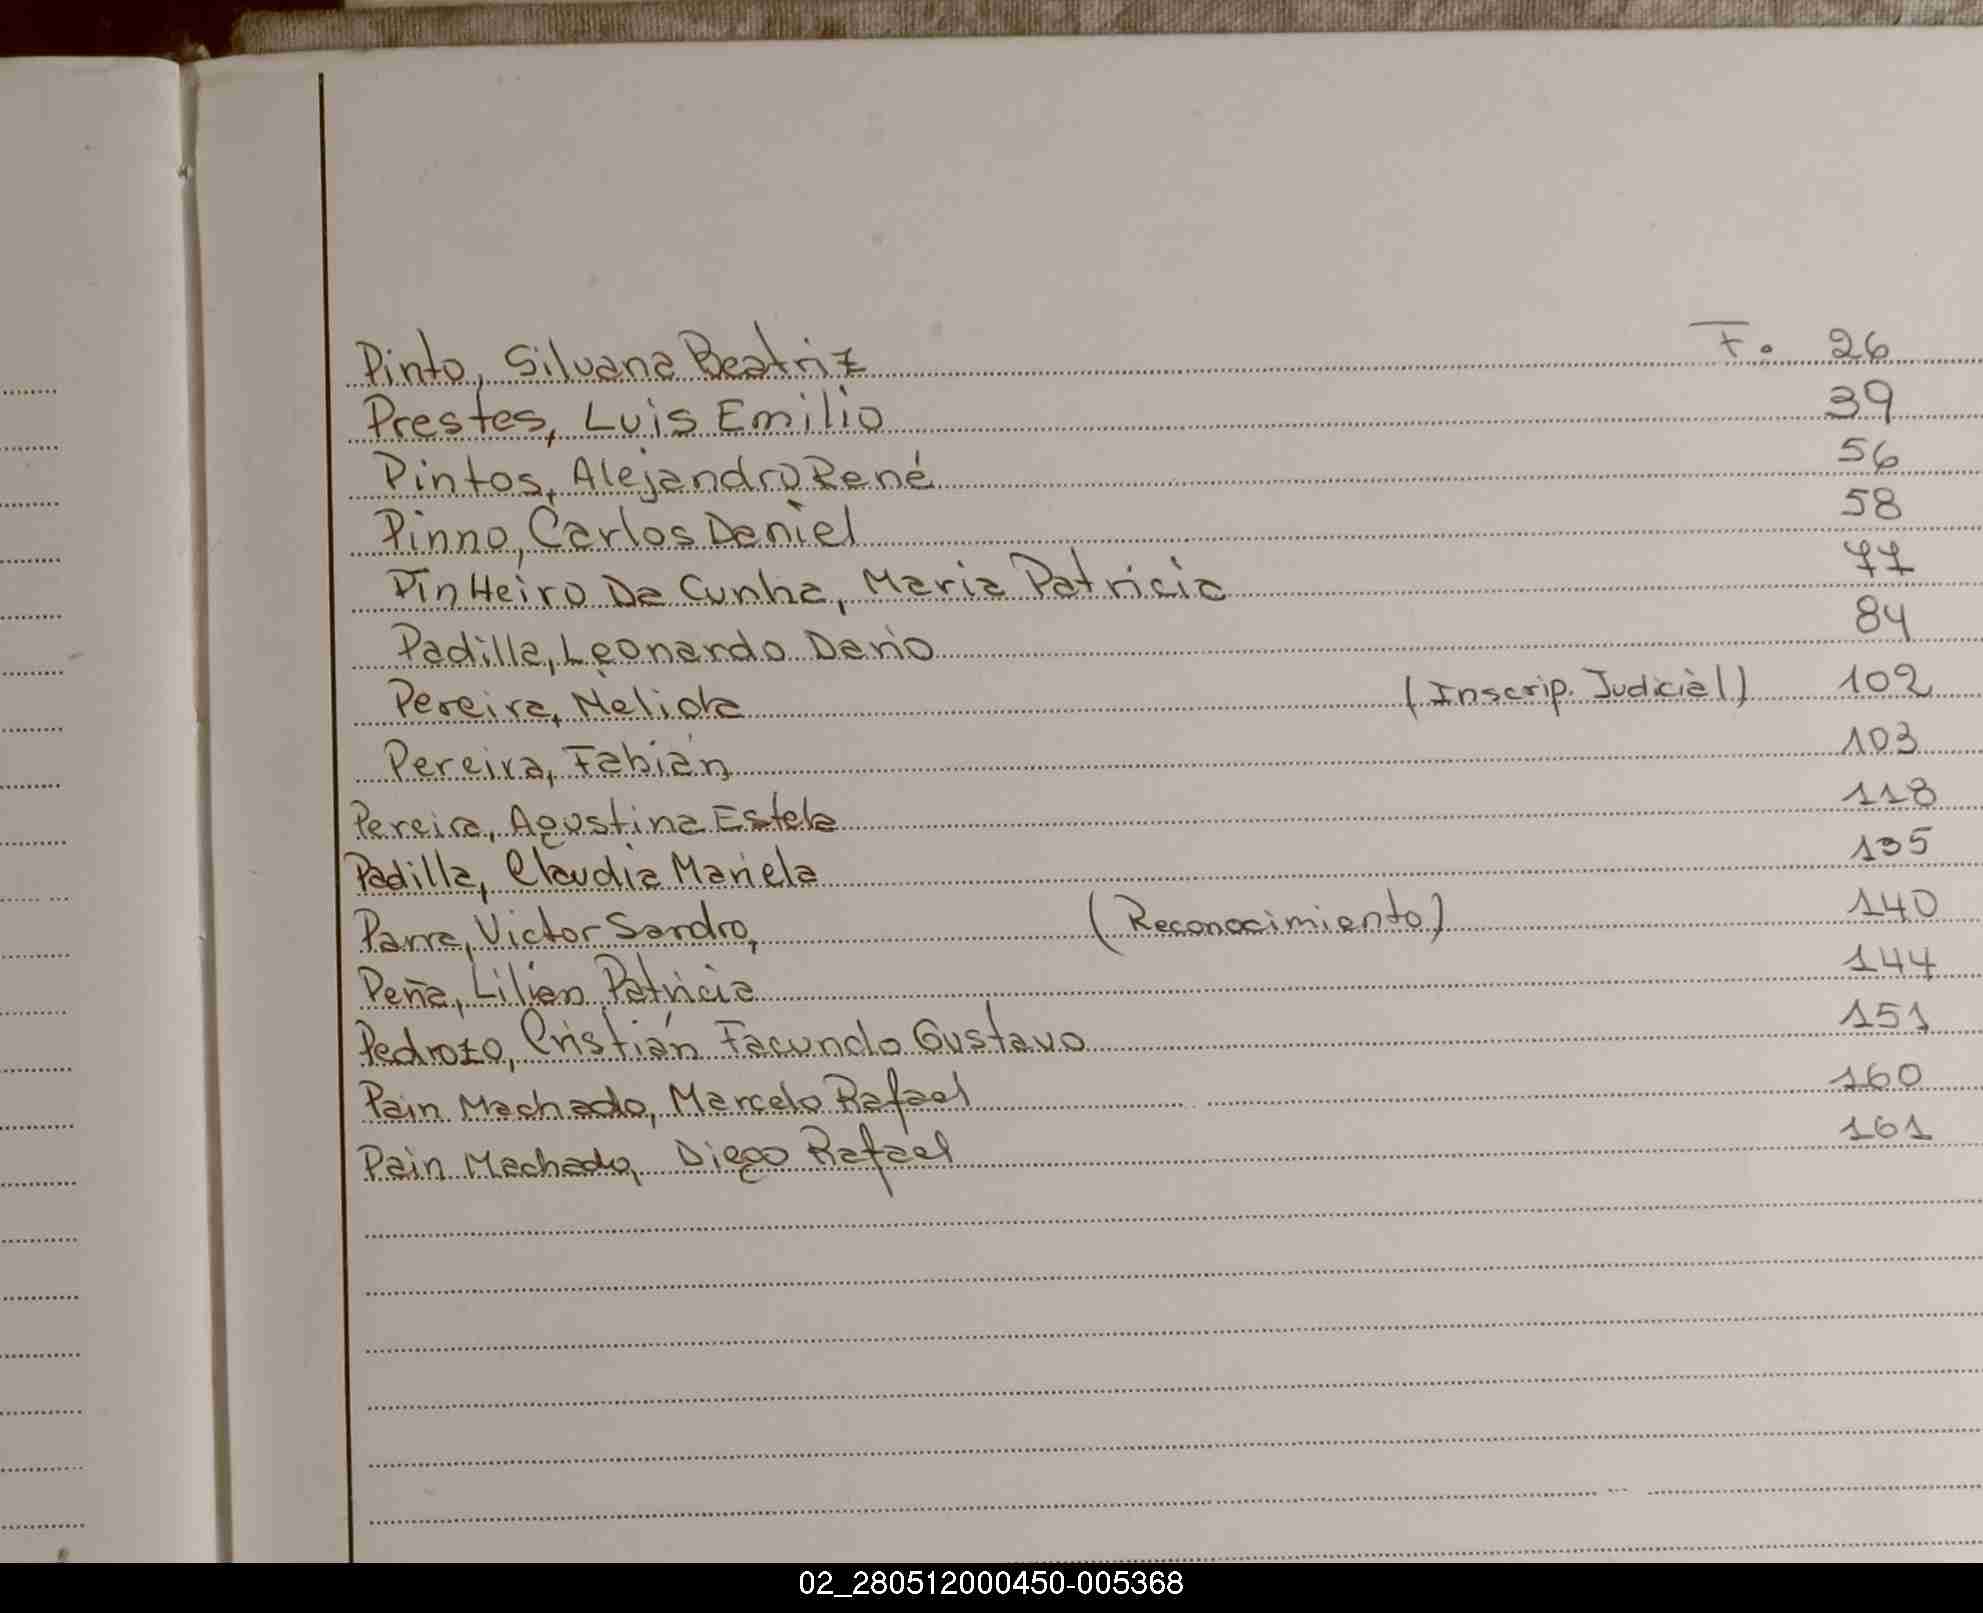 Pinto, Silvana Beatriz F. 26
Prestes, Luis Emilio 39
Pintos, Alejandro René 56
Pinno, Carlos Daniel 58
PinHeiro Da Cunha, Maria Patricia 77
Padilla, Leonardo Darío 84
Pereira, Nelida (Inscrip. Judicial) 102
Pereira, Fabián 103
Pereira, Agustina Estela 118
Padilla, Claudia Mariela 135
Parra, Victor Sandro, (Reconocimiento) 140
Peña, Lilian Patricia 144
Pedrozo, Cristián Facundo Gustavo 151
Pain Machado, Marcelo Rafael 160
Pain Machado, Diego Rafael 161
02_280512000450-005368